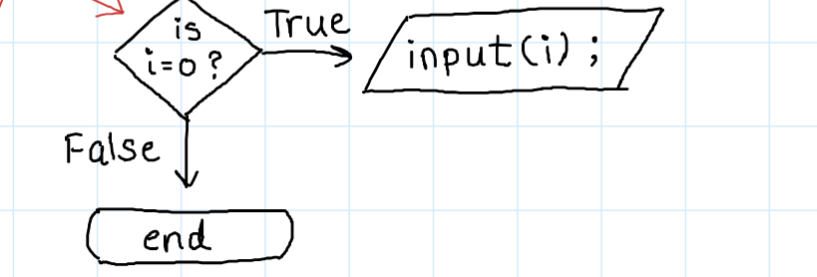 is
i=0 ?
True
input(i) ;
False
end